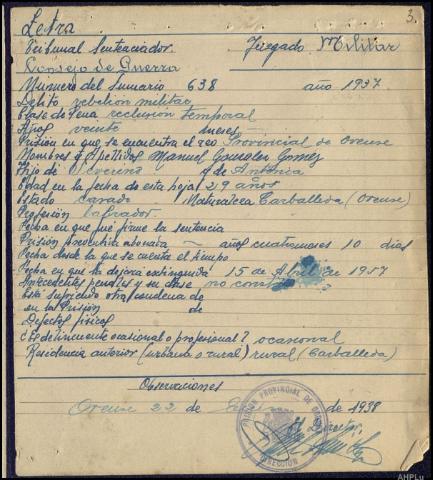 3.
Letra
Tribunal Sentenciador Juzgado Militar
Consejo de Guerra
Número del Sumario 638 año 1937
Delito rebelion militar
Clase de Pena reclusión temporal
Años veinte meses —
Prisión en que se encuentra el reo Provincial de Orense
Nombres y Apellidos Manuel Gonzales Gomez
Hijo de y de Antonia
Edad en la fecha de esta hoja 29 años
Estado casado Naturaleza Carballeda (Orense)
Profesión labrador
Fecha en que fué firme la sentencia
Prisión preventiva abonada — años cuatro meses 10 dias
Fecha desde la que se cuenta el tiempo
Fecha en que la dejará extinguida 15 de Abril de 1957
Antecedentes penales y su clase no constan
Está sufriendo otra condena de
en la Prisión de
Defectos fisicos
¿Es delincuente ocasional o profesional? ocasional
Residencia anterior (urbana o rural) rural (Carballeda)
Observaciones
Orense 22 de de 1938
El Director,
PRISION PROVINCIAL DE
DIRECCION
AHPLu